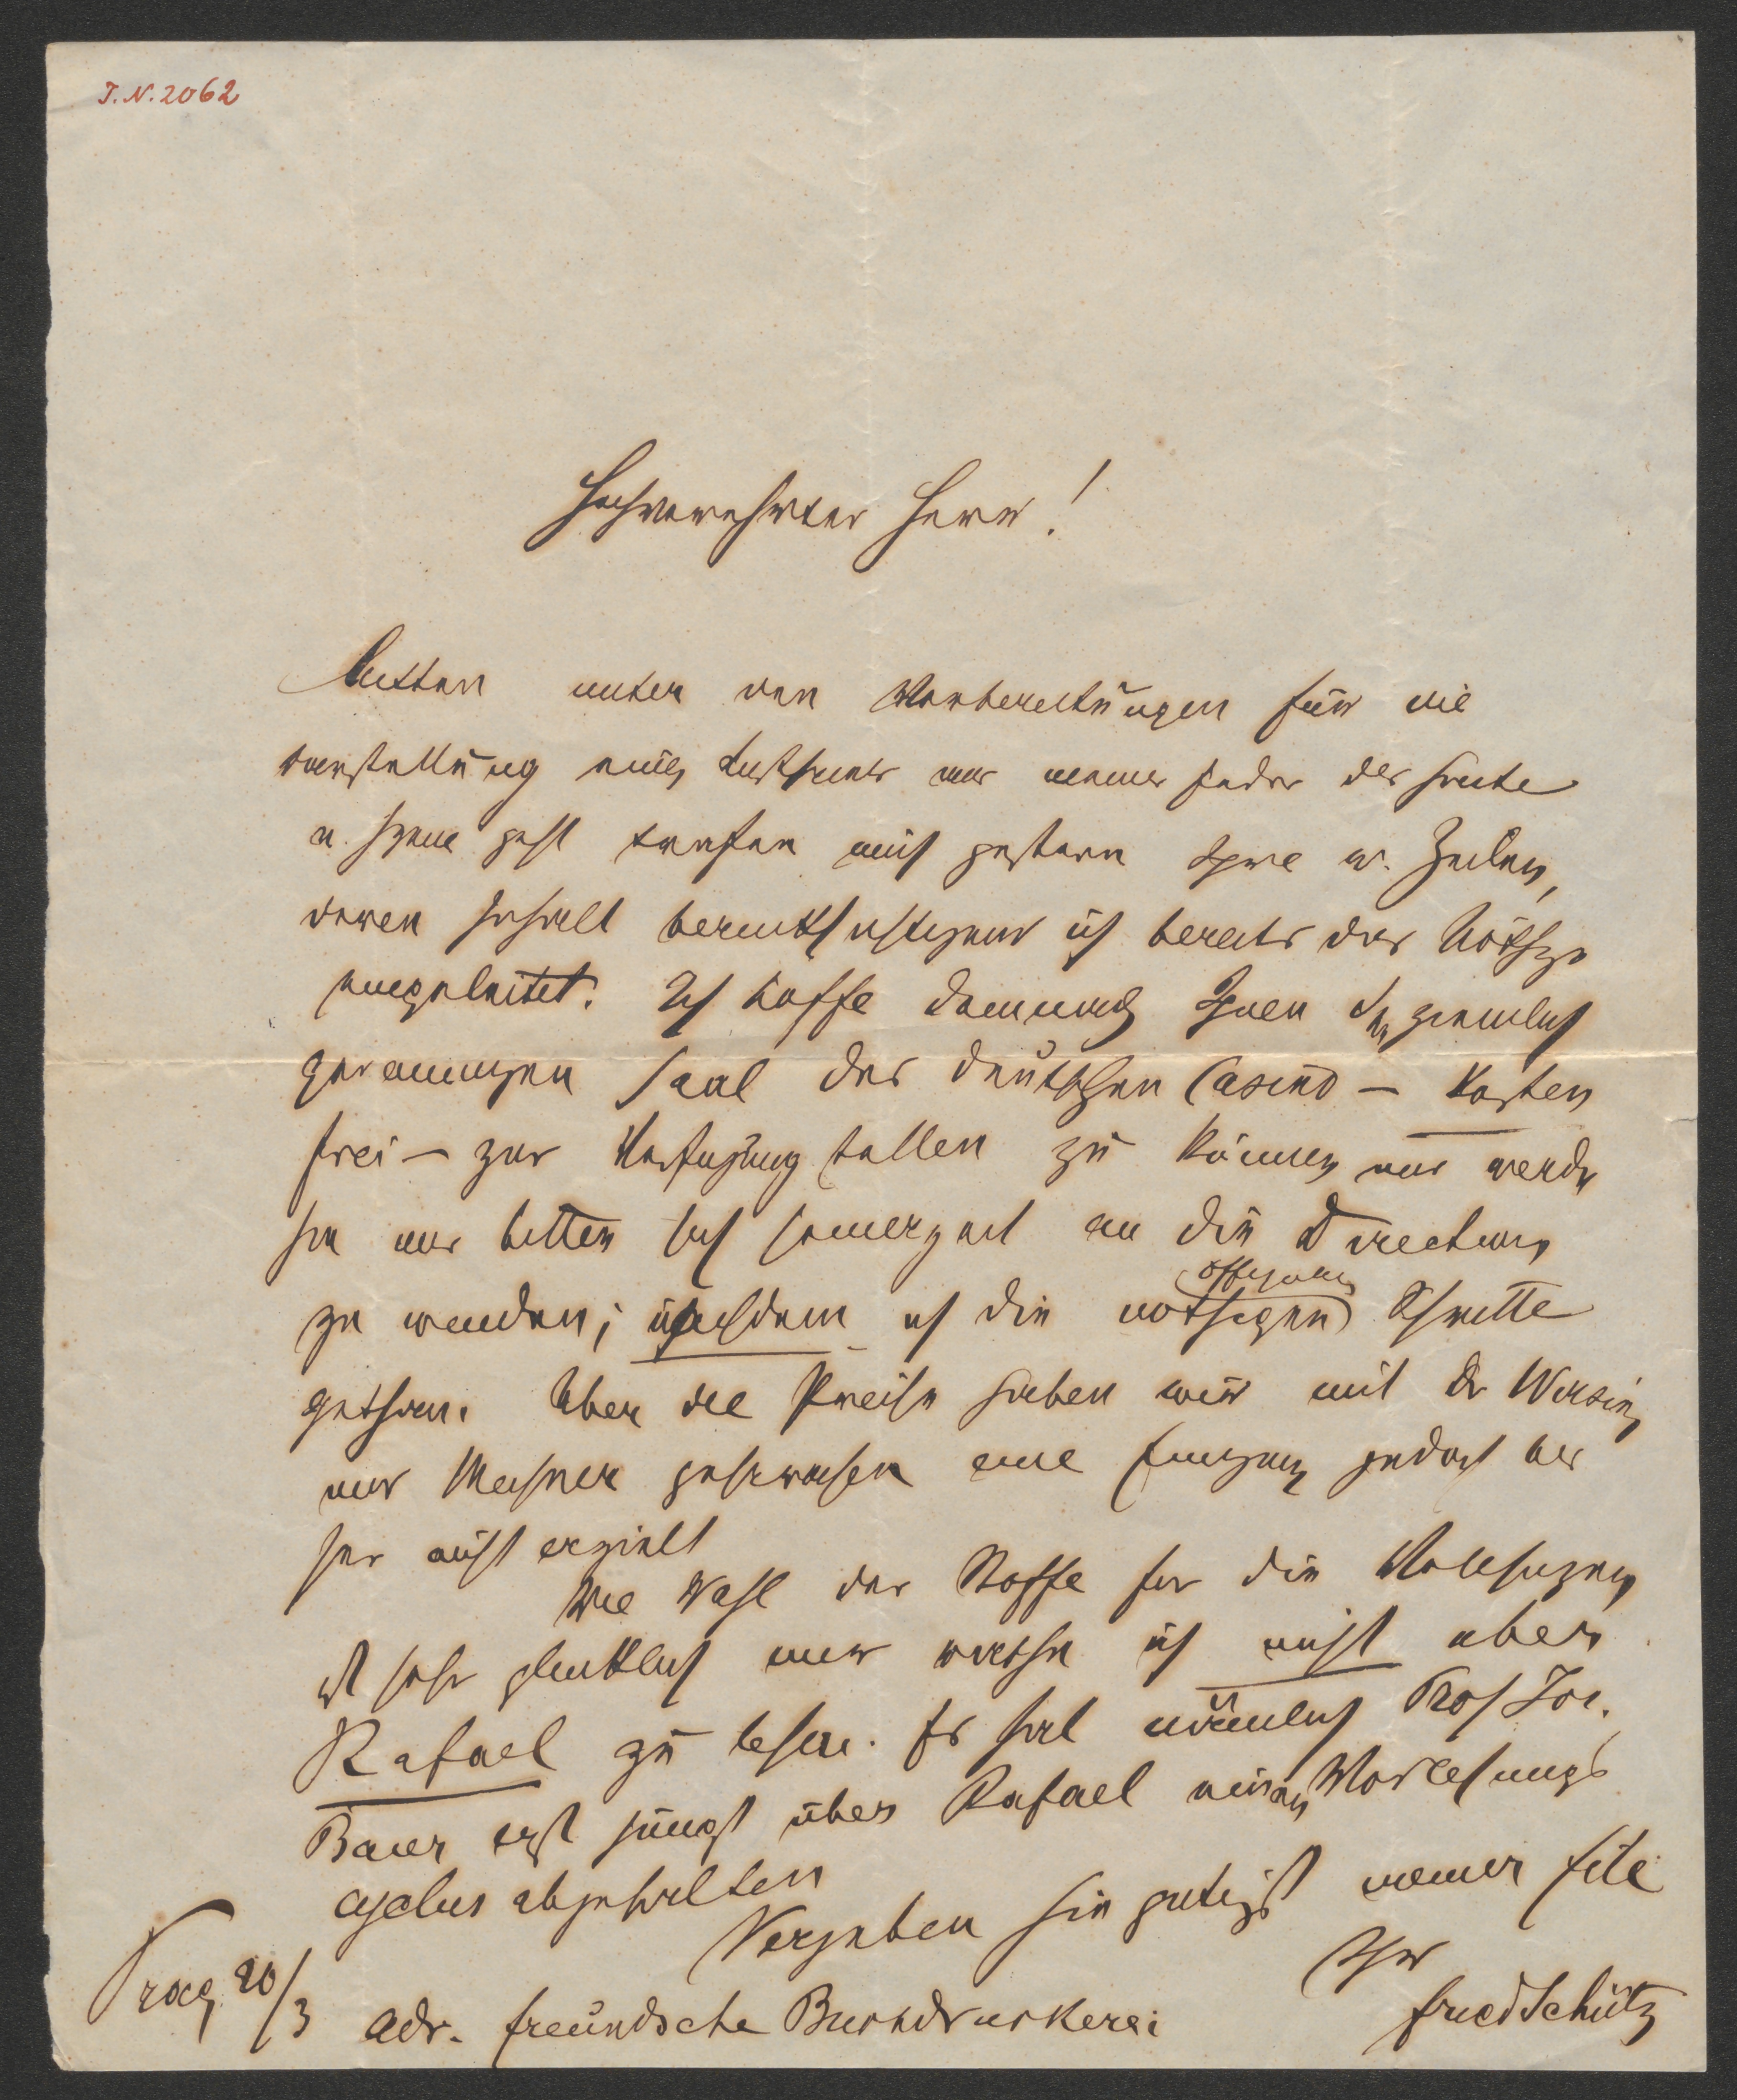 J.N. 2062
Hochverehrter Herr!
Mitten unter den Vorbereitungen für die
Darstellung eines Lustspiels aus meiner Feder das heute
in Szene geht trafen mich gestern Ihre w. Zeilen,
deren Inhalt berücksichtigend ich bereits das Nöthige
eingeleitet. Ich hoffe demnach Ihnen den ziemlich
geräumigen Saal des deutschen Casino – kosten
frei – zur Verfügung stellen zu können und werde
Sie nur bitten sich seinerzeit an die Direction
zu wenden; nachdem ich die nöthigen Schritte
gethan. Über die Preise haben wir mit Dr Wirsing
und gesprochen eine Einigung jedoch bis
her nicht erzielt
Die Wahl der Stoffe für die Vorlesungen
ist sehr glücklich nur rathe ich nicht über
Rafael zu lesen. Es hat nämlich Prof Jos.
Bayer erst jüngst über Rafael einen Vorlesungs
cyclus abgehalten
Vergeben Sie gütigst meiner Eile
Ihr
Fried Schütz
Prag 20/3
Adr. Freundsche Buchdruckerei